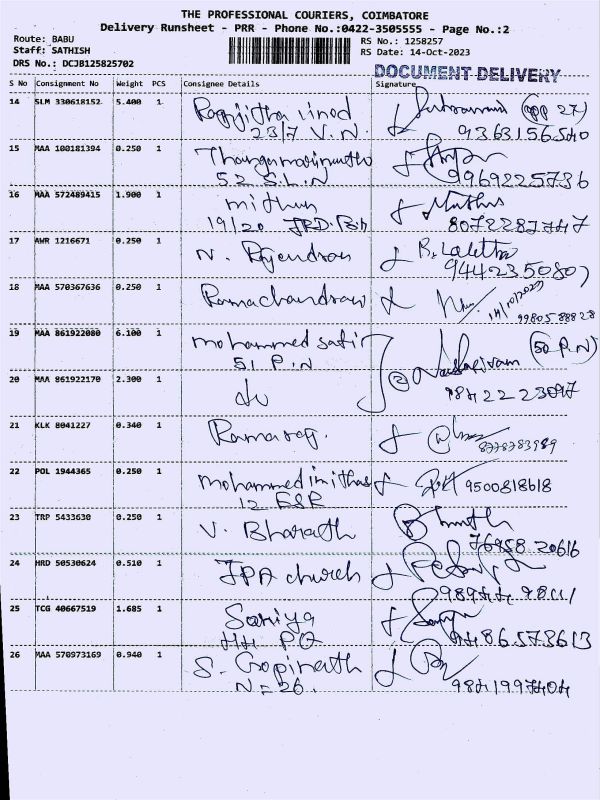 THE PROFESSIONAL COURIERS, COIMBATORE
Delivery Runsheet - PRR - Phone No.:0422-3505555 - Page No.:2
Route: BABU
Staff: SATHISH
DRS No.: DCJB125825702
RS No.: 1258257
RS Date: 14-Oct-2023
DOCUMENT DELIVERY
S No Consignment No Weight PCS Consignee Details Signature
14 SLM 330618152 5.400 1
23/7 V.N. 9363156540
15 MAA 100181394 0.250 1
52 S.L.N 9969225736
16 MAA 572489415 1.900 1 mithun
19/20 8072287747
17 AWR 1216671 0.250 1 N. Rajendran R. Lalitha
9442350807
18 MAA 570367636 0.250 1 Ramachandran 14/10/2023
9980588828
19 MAA 861922080 6.100 1 mohammed (50 P.N)
51 P.N
20 MAA 861922170 2.300 1 do 9842223097
21 KLK 8041227 0.340 1 Ramaraj. 8778783989
22 POL 1944365 0.250 1 mohammed imithas 9500818618
12 ESR
23 TRP 5433630 0.250 1 V. Bharath
76958 20616
24 HRD 50530624 0.510 1 JPA church
25 TCG 40667519 1.685 1 Saniya
HH PO 9486573613
26 MAA 570973169 0.940 1 S. Gopinath
N=26. 9841997404